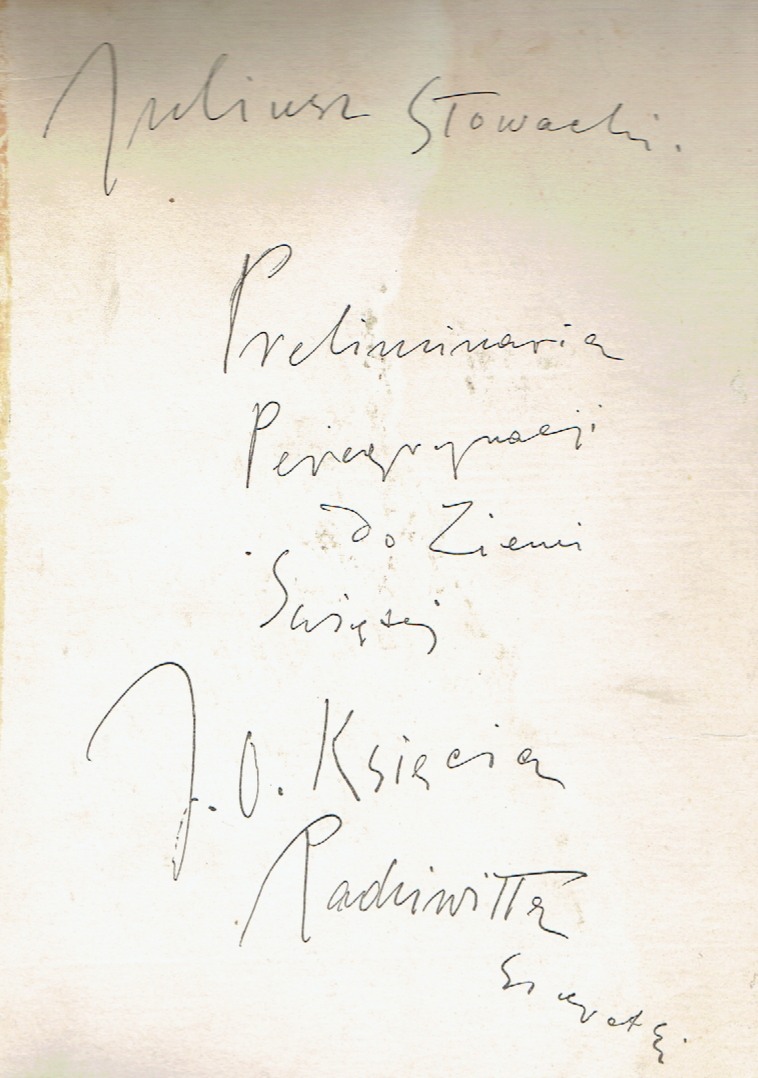 Juliusz Słowacki.
Preliminaria
Peregrynacji
do Ziemi
Świętej
J. O. Księcia
Radziwiłła
Sierotki